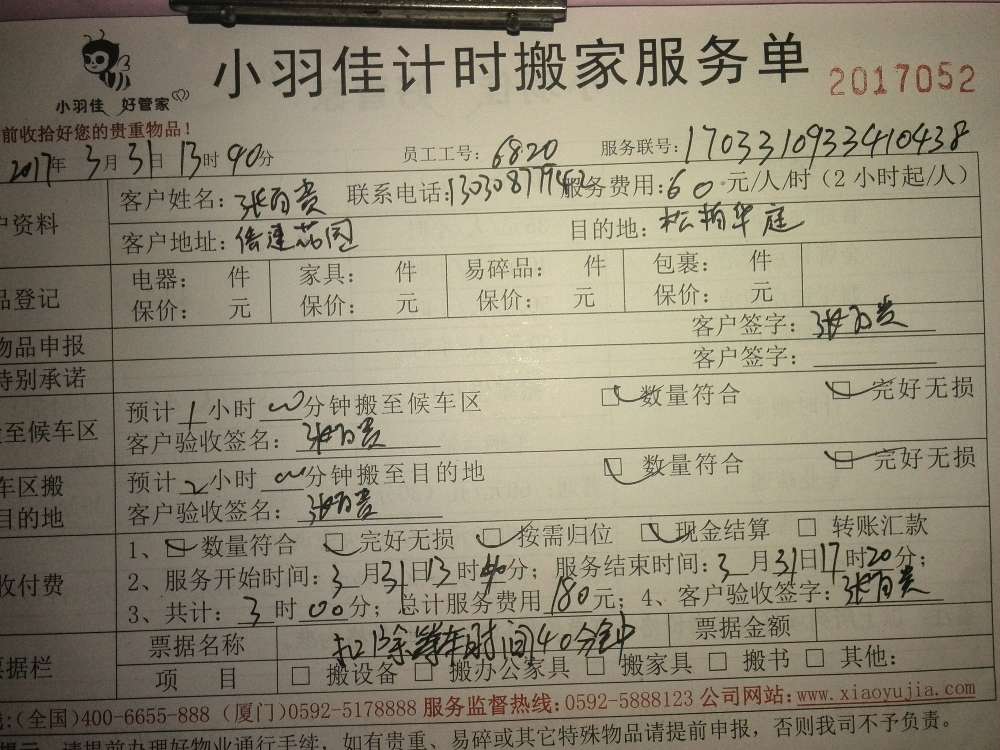 小羽佳计时搬家服务单
2017052
小羽佳 好管家
前收拾好您的贵重物品！
2017年3月31日13时40分 员工工号：6820 服务联号：1703310933410438
户资料 客户姓名：张百贵 联系电话：13030877942 服务费用：60元/人/时（2小时起/人）
客户地址：信达花园 目的地：松柏华庭
品登记 电器： 件 家具： 件 易碎品： 件 包裹： 件
保价： 元 保价： 元 保价： 元 保价： 元
物品申报 客户签字：张百贵
特别承诺 客户签字：
至候车区 预计1小时00分钟搬至候车区 数量符合 完好无损
客户验收签名：张百贵
车区搬 预计2小时00分钟搬至目的地 数量符合 完好无损
目的地 客户验收签名：张百贵
1、数量符合 完好无损 按需归位 现金结算 □ 转账汇款
收付费 2、服务开始时间：3月31日13时40分；服务结束时间：3月31日17时20分；
3、共计：3时00分；总计服务费用180元；4、客户验收签字：张百贵
票据栏 票据名称 扣除等车时间40分钟 票据金额
项 目 □ 搬设备 □ 搬办公家具 □ 搬家具 □ 搬书 □ 其他：
:(全国)400-6655-888 (厦门)0592-5178888 服务监督热线:0592-5888123 公司网站:www.xiaoyujia.com
请提前办理好物业通行手续，如有贵重、易碎或其它特殊物品请提前申报，否则我司不予负责。